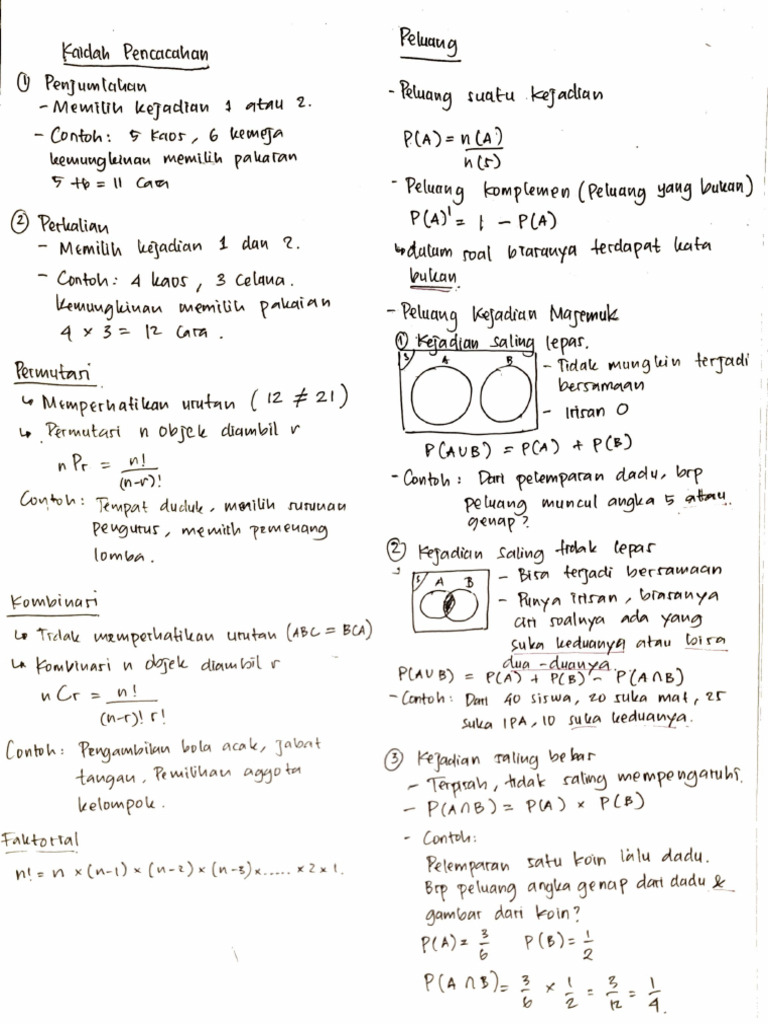 Kaidah Pencacahan
① Penjumlahan
- Memilih kejadian 1 atau 2.
- Contoh: 5 kaos, 6 kemeja
kemungkinan memilih pakaian
5 + 6 = 11 cara
② Perkalian
- Memilih kejadian 1 dan 2.
- Contoh: 4 kaos, 3 celana.
kemungkinan memilih pakaian
4 × 3 = 12 cara.
Permutasi
↳ Memperhatikan urutan (12 ≠ 21)
↳ Permutasi n objek diambil r
nPr = n!
(n-r)!
Contoh: Tempat duduk, memilih susunan
pengurus, memilih pemenang
lomba.
Kombinasi
↳ Tidak memperhatikan urutan (ABC = BCA)
↳ Kombinasi n objek diambil r
nCr = n!
(n-r)! r!
Contoh: Pengambilan bola acak, jabat
tangan, Pemilihan aggota
kelompok.
Faktorial
n! = n × (n-1) × (n-2) × (n-3) × ..... × 2 × 1.
Peluang
- Peluang suatu kejadian
P(A) = n(A)
n(S)
- Peluang komplemen (peluang yang bukan)
P(A)' = 1 - P(A)
↳ dalam soal biasanya terdapat kata
bukan.
- Peluang Kejadian Majemuk
① Kejadian saling lepas.
S A B
- Tidak mungkin terjadi
bersamaan
- Irisan 0
P(A∪B) = P(A) + P(B)
- Contoh: Dari pelemparan dadu, brp
peluang muncul angka 5 atau
genap?
② Kejadian saling tidak lepas
S A B
- Bisa terjadi bersamaan
- Punya irisan, biasanya
ciri soalnya ada yang
suka keduanya atau bisa
dua-duanya.
P(A∪B) = P(A) + P(B) - P(A∩B)
- Contoh: Dari 40 siswa, 20 suka mat, 25
suka IPA, 10 suka keduanya.
③ Kejadian saling bebas
- Terpisah, tidak saling mempengaruhi.
- P(A∩B) = P(A) × P(B)
- Contoh:
Pelemparan satu koin lalu dadu.
Brp peluang angka genap dari dadu &
gambar dari koin?
P(A) = 3/6 P(B) = 1/2
P(A∩B) = 3/6 × 1/2 = 3/12 = 1/4.